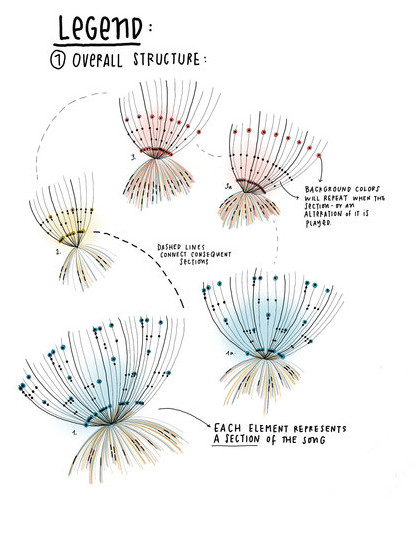 LEGEND:
1 OVERALL STRUCTURE:
3.
3a
BACKGROUND COLORS
WILL REPEAT WHEN THE
SECTION - OR AN
ALTERATION OF IT IS
PLAYED.
2.
DASHED LINES
CONNECT CONSEQUENT
SECTIONS
1a.
1.
EACH ELEMENT REPRESENTS
A SECTION OF THE SONG